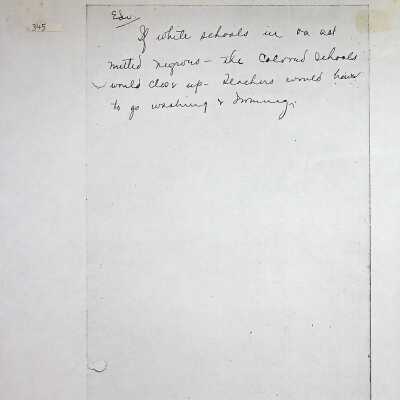 345
Edu
If white schools in va ad
mitted Negroes - the Colored Schools
would close up - Teachers would have
to go washing & Ironing.